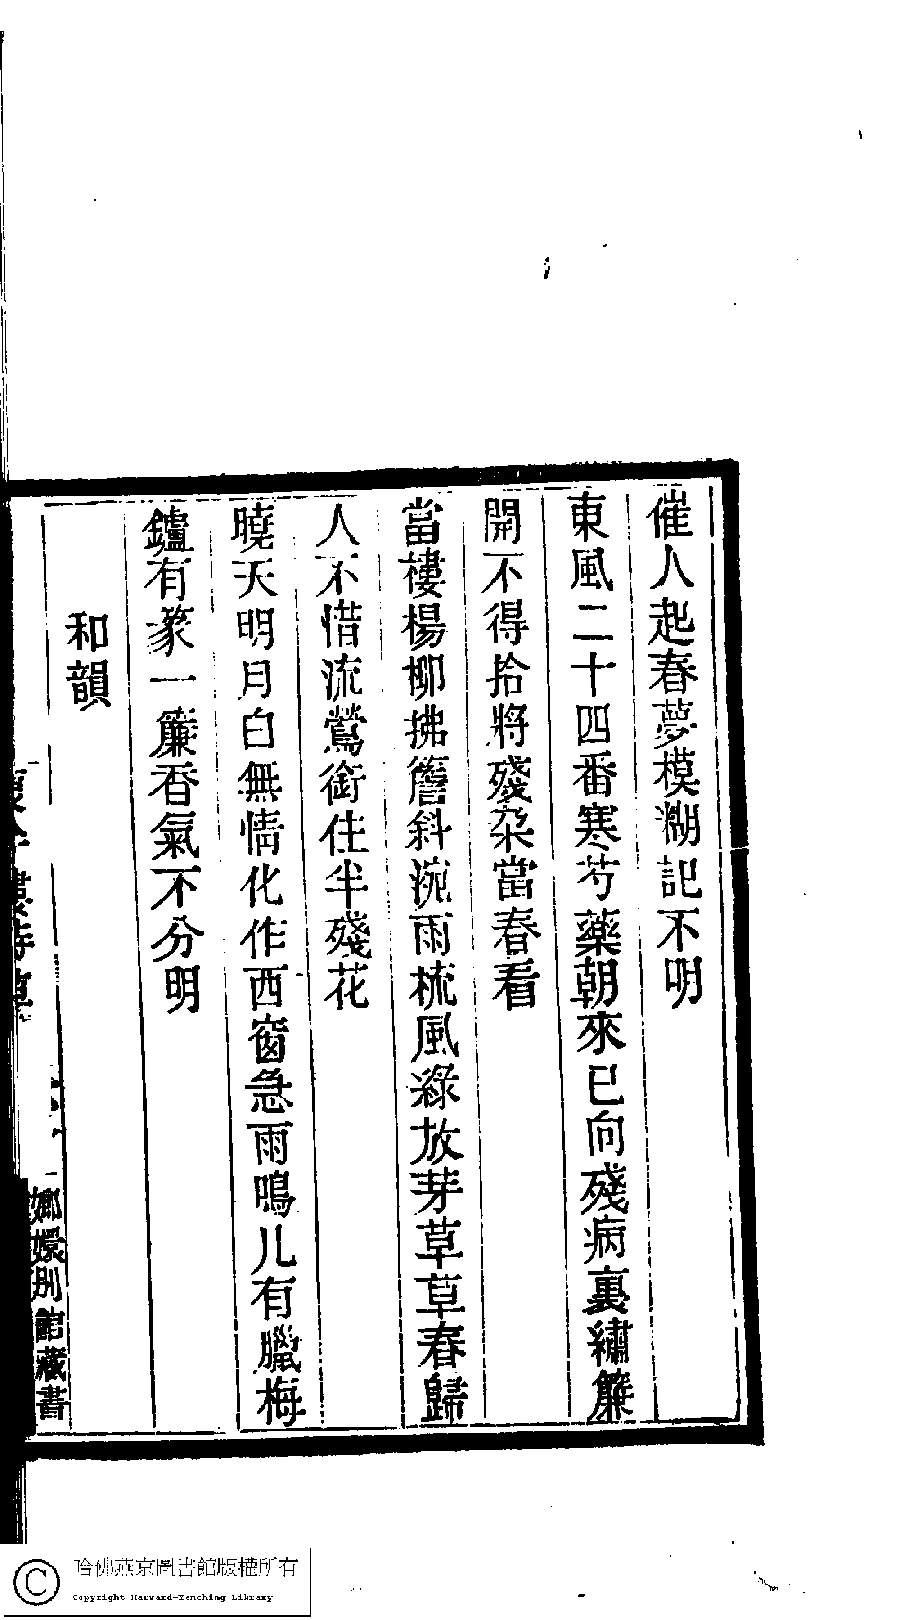 催人起春夢模溯記不明
東風二十四番寒芍藥朝來已向殘病裏繡簾
開不得拾將殘朶當春看
當樓楊柳拂簷斜浣雨梳風綠放芽草草春歸
人不惜流鶯銜住半殘花
曉天明月白無情化作西窗急雨鳴几有臘梅
鑪有篆一簾香氣不分明
和韻
嫏嬛別館藏書
哈佛燕京圖書館版權所有
Copyright Harvard-Yenching Library